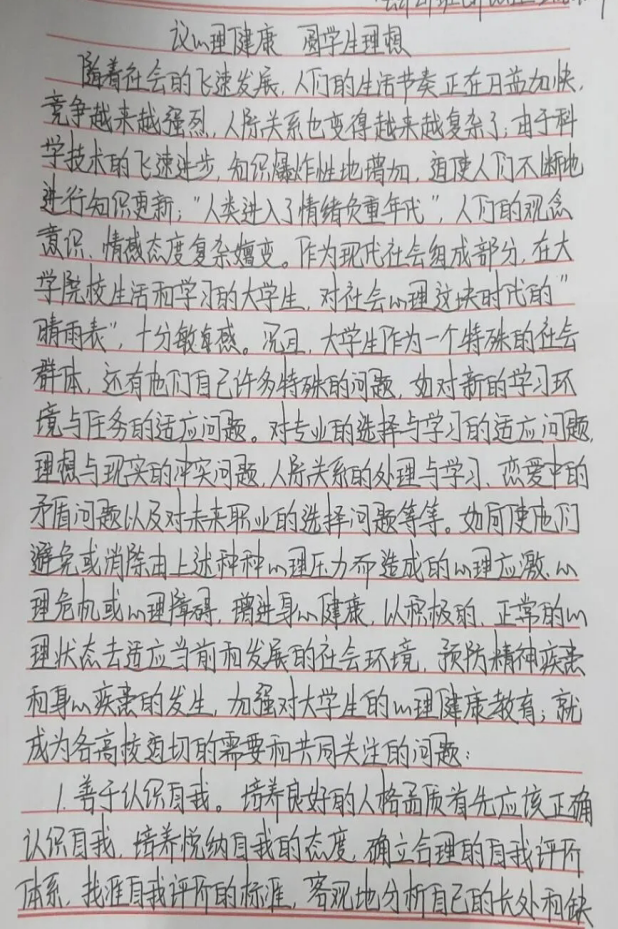 议心理健康 圆学生理想
随着社会的飞速发展,人们的生活节奏正在日益加快,
竞争越来越强烈,人际关系也变得越来越复杂了;由于科
学技术的飞速进步,知识爆炸性地增加,迫使人们不断地
进行知识更新;"人类进入了情绪负重年代",人们的观念
意识、情感态度复杂嬗变。作为现代社会组成部分,在大
学院校生活和学习的大学生,对社会心理这块时代的"
晴雨表",十分敏感。况且,大学生作为一个特殊的社会
群体,还有他们自己许多特殊的问题,如对新的学习环
境与任务的适应问题。对专业的选择与学习的适应问题,
理想与现实的冲突问题,人际关系的处理与学习、恋爱中的
矛盾问题以及对未来职业的选择问题等等。如何使他们
避免或消除由上述种种心理压力而造成的心理应激、心
理危机或心理障碍,增进身心健康,以积极的、正常的心
理状态去适应当前和发展的社会环境,预防精神疾患
和身心疾患的发生,加强对大学生的心理健康教育;就
成为各高校迫切的需要和共同关注的问题:
1.善于认识自我。培养良好的人格品质首先应该正确
认识自我,培养悦纳自我的态度,确立合理的自我评价
体系,找准自我评价的标准,客观地分析自己的长处和缺